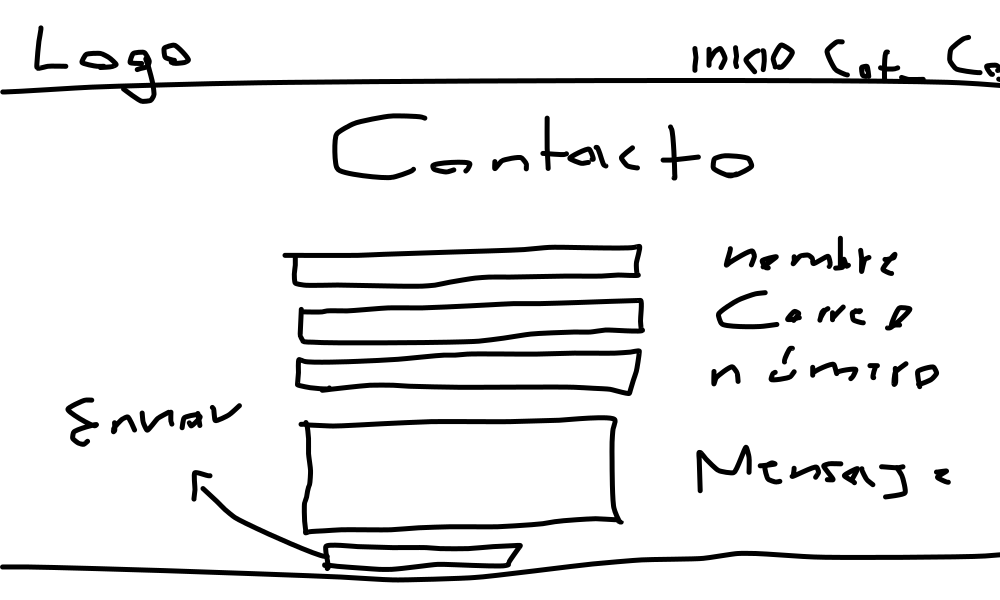 Logo inicio Cat. Co
Contacto
nombre
Correo
número
Enviar
Mensaje